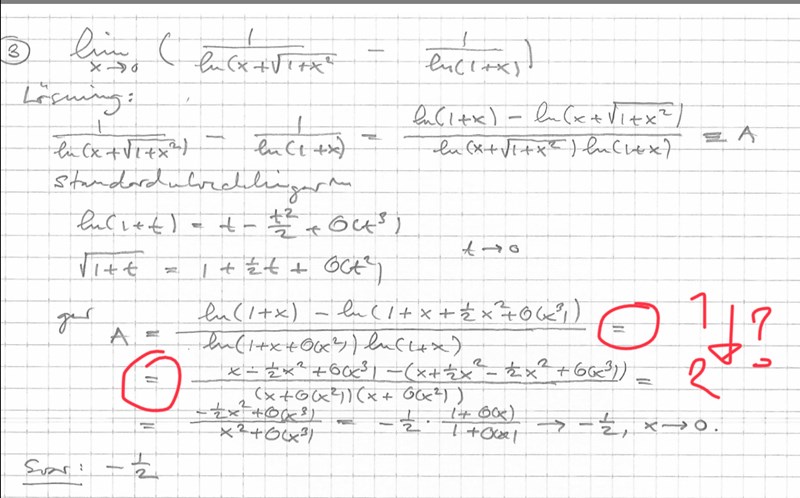 3) lim x→0 ( 1/ln(x+√1+x² − 1/ln(1+x) )
Lösning:
1/ln(x+√1+x²) − 1/ln(1+x) = ln(1+x) − ln(x+√1+x²) / ln(x+√1+x²) ln(1+x) = A
Standardutvecklingarna
ln(1+t) = t − t²/2 + O(t³)
t→0
√1+t = 1 + ½t + O(t²)
ger A = ln(1+x) − ln(1+x+½x²+O(x³)) / ln(1+x+O(x²)) ln(1+x) = 1 ↓ ?
= x−½x²+O(x³) −(x+½x²−½x²+O(x³)) / (x+O(x²))(x+O(x²)) = 2
= −½x²+O(x³) / x²+O(x³) = −½ · 1+O(x) / 1+O(x) → −½, x→0.
Svar: −½